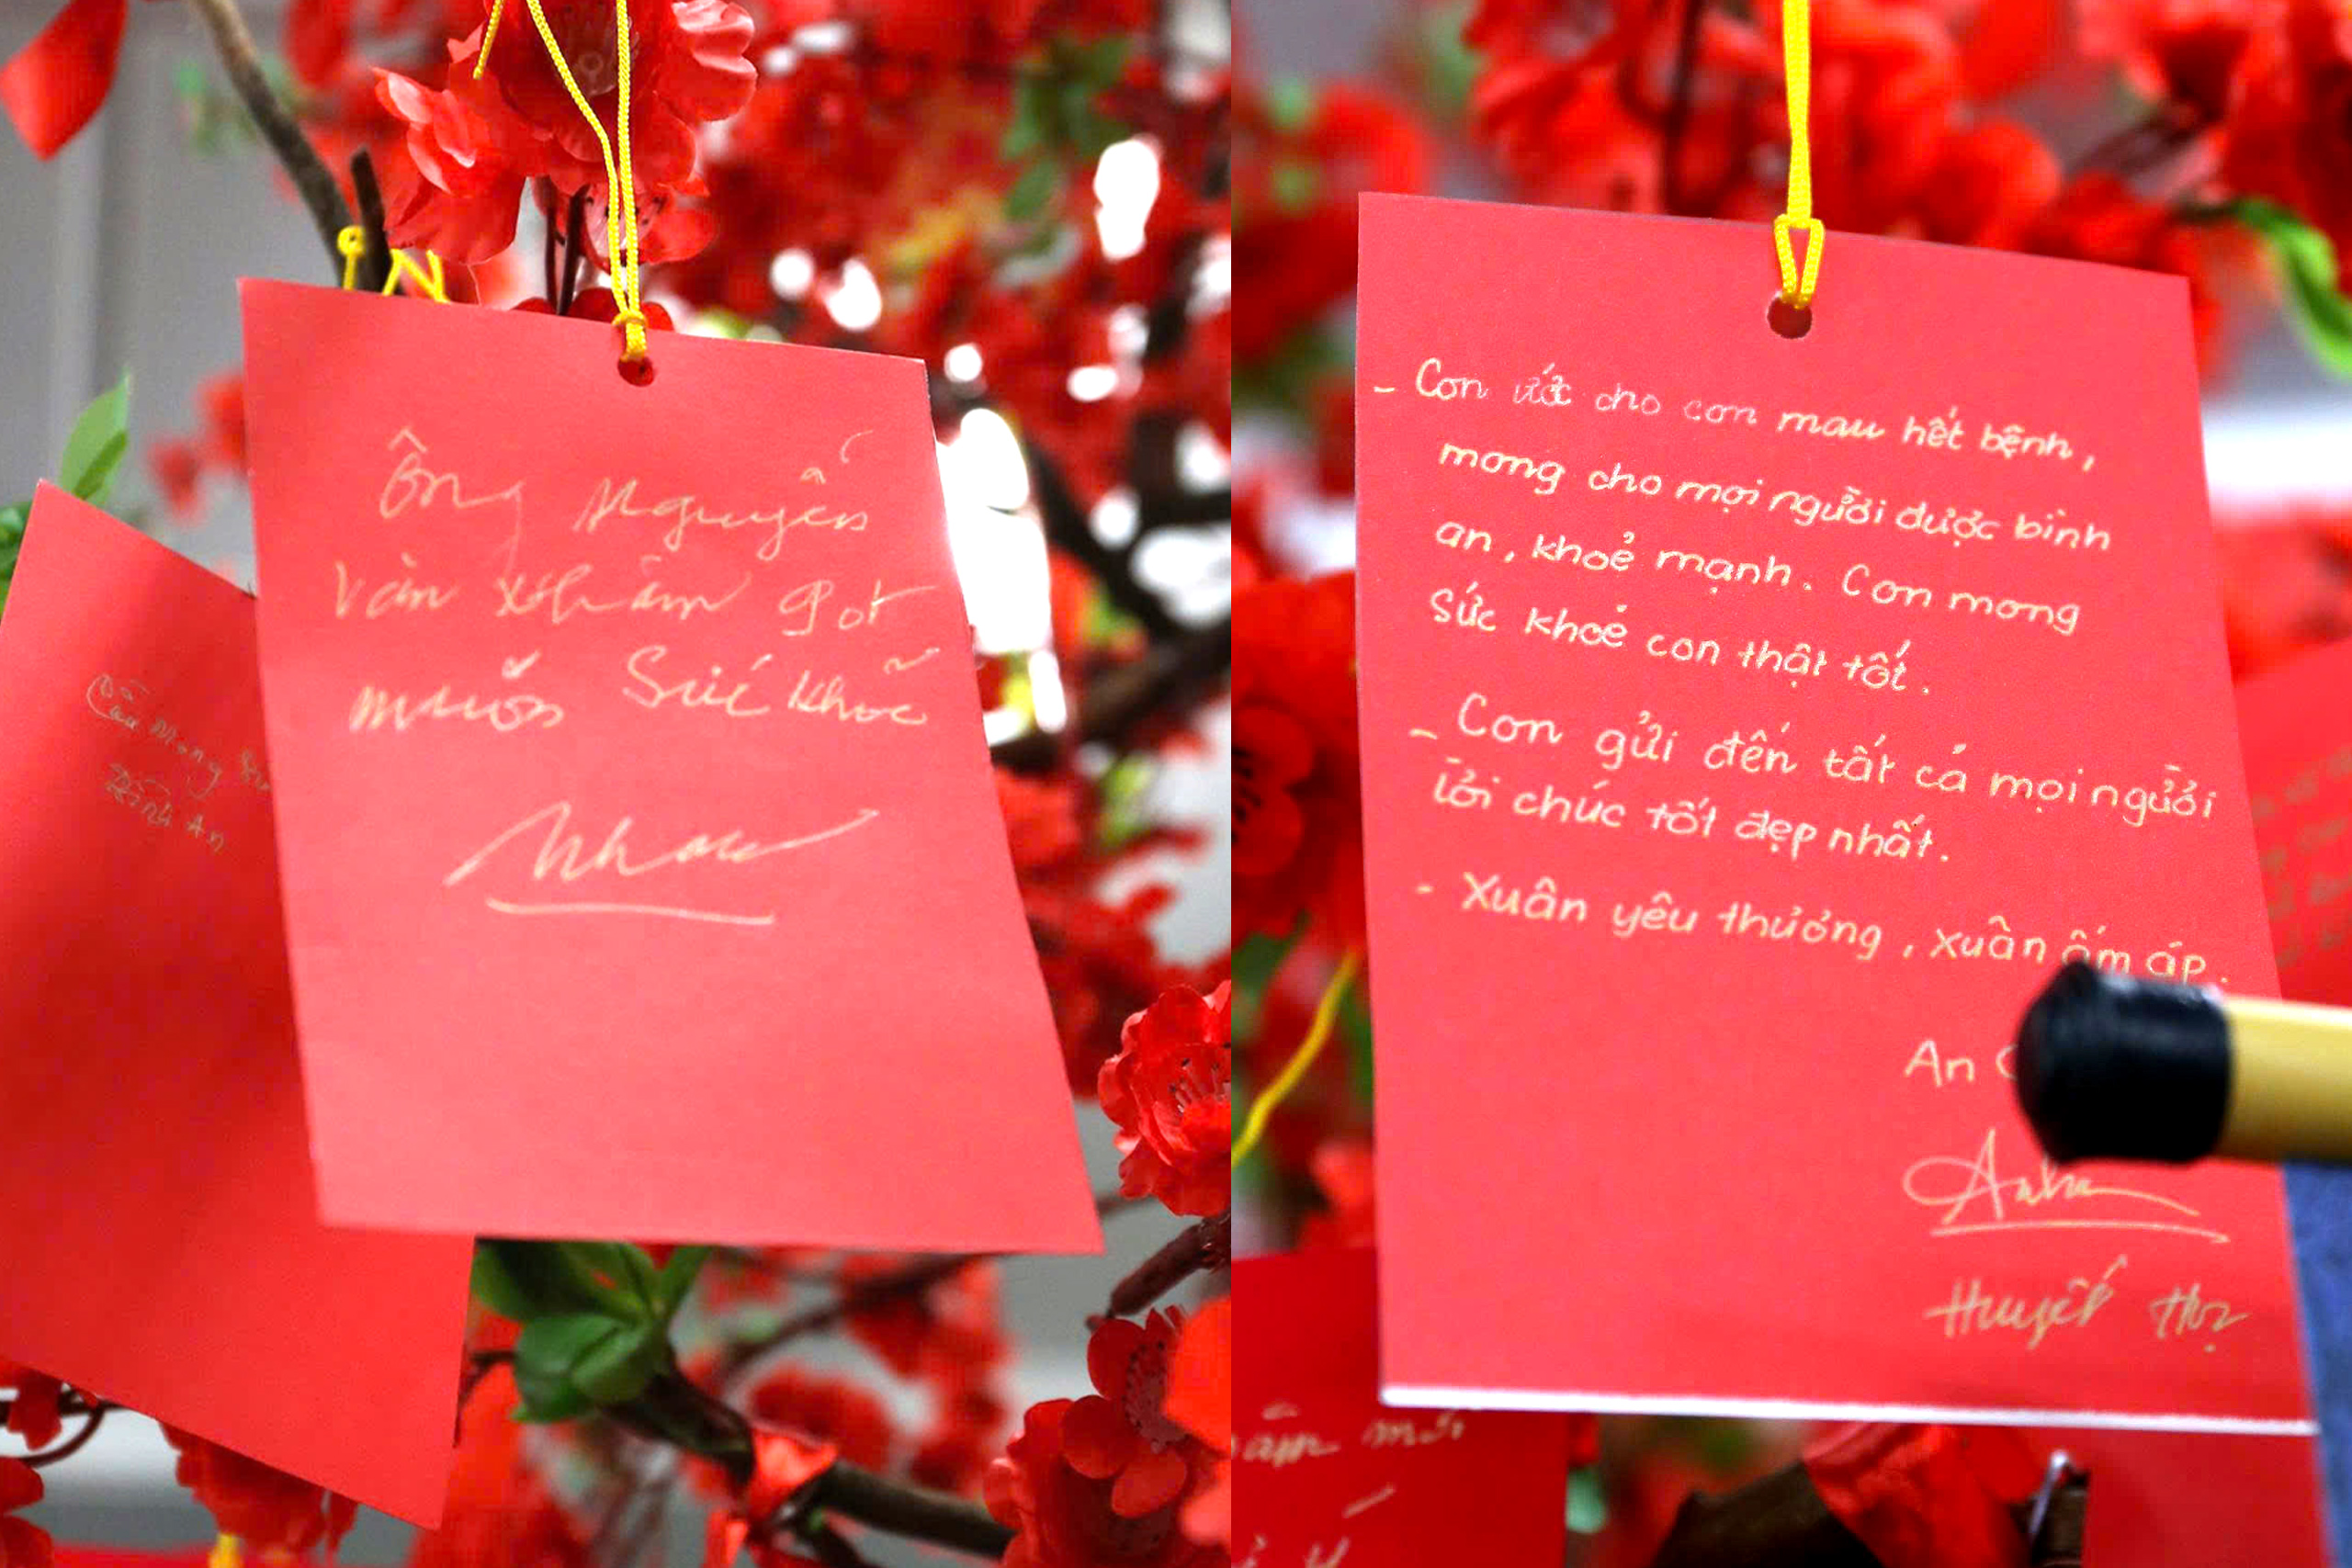 Ông Nguyễn
Văn
muốn Sức khỏe
Cầu Mong
Bình An
- Con ước cho con mau hết bệnh,
mong cho mọi người được bình
an, khoẻ mạnh. Con mong
sức khoẻ con thật tốt.
- Con gửi đến tất cả mọi người
lời chúc tốt đẹp nhất.
- Xuân yêu thương, xuân ấm áp.
An
Huyết